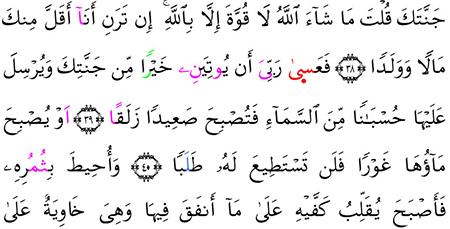 جَنَّتَكَ قُلْتَ مَا شَآءَ ٱللَّهُ لَا قُوَّةَ إِلَّا بِٱللَّهِۚ إِن تَرَنِ أَنَآ أَقَلَّ مِنكَ
مَالٗا وَوَلَدٗا ﴿٣٨﴾ فَعَسىٰ رَبِّيَ أَن يُوتِيَنِۦ خَيْرٗا مِّن جَنَّتِكَ وَيُرْسِلَ
عَلَيْهَا حُسْبَٰنٗا مِّنَ ٱلسَّمَآءِ فَتُصْبِحَ صَعِيدٗا زَلَقًا ﴿٣٩﴾ اَوْ يُصْبِحَ
مَآؤُهَا غَوْرٗا فَلَن تَسْتَطِيعَ لَهُۥ طَلَبٗا ﴿٤٠﴾ وَأُحِيطَ بِثُمُرِهِۦ
فَأَصْبَحَ يُقَلِّبُ كَفَّيْهِ عَلَىٰ مَآ أَنفَقَ فِيهَا وَهِيَ خَاوِيَةٌ عَلَىٰ